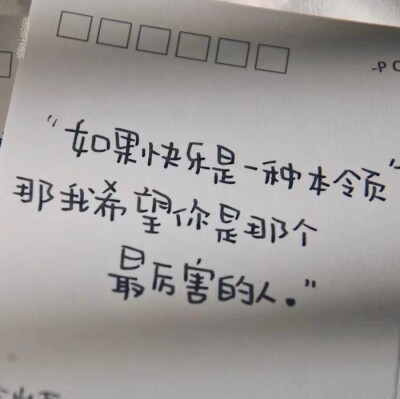 -P
"如果快乐是一种本领"
那我希望你是那个
最厉害的人。"